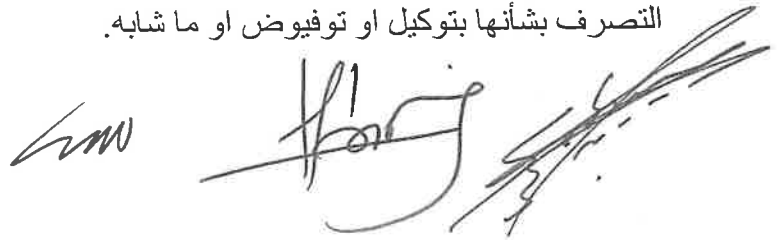 التصرف بشأنها بتوكيل او توفيوض او ما شابه.